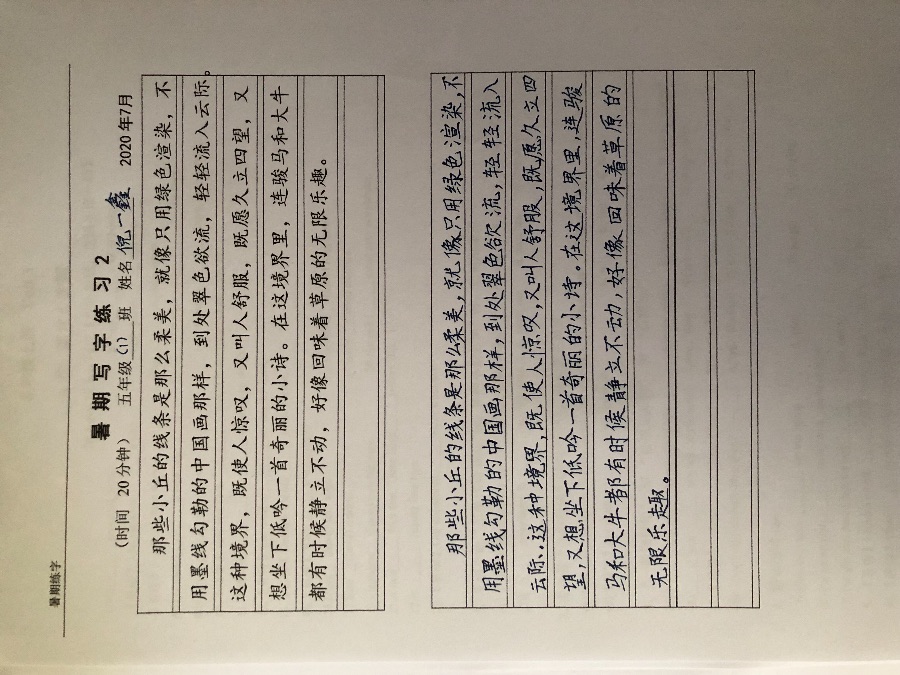 暑期练字
暑期写字练习2
(时间 20分钟) 五年级(1)班 姓名倪一鑫 2020年7月
那些小丘的线条是那么柔美，就像只用绿色渲染，不
用墨线勾勒的中国画那样，到处翠色欲流，轻轻流入云际。
这种境界，既使人惊叹，又叫人舒服，既愿久立四望，又
想坐下低吟一首奇丽的小诗。在这境界里，连骏马和大牛
都有时候静立不动，好像回味着草原的无限乐趣。
那些小丘的线条是那么柔美,就像只用绿色渲染,不
用墨线勾勒的中国画那样,到处翠色欲流,轻轻流入
云际.这种境界,既使人惊叹,又叫人舒服,既愿久立四
望,又想坐下低吟一首奇丽的小诗。在这境界里,连骏
马和大牛都有时候静立不动,好像回味着草原的
无限乐趣。